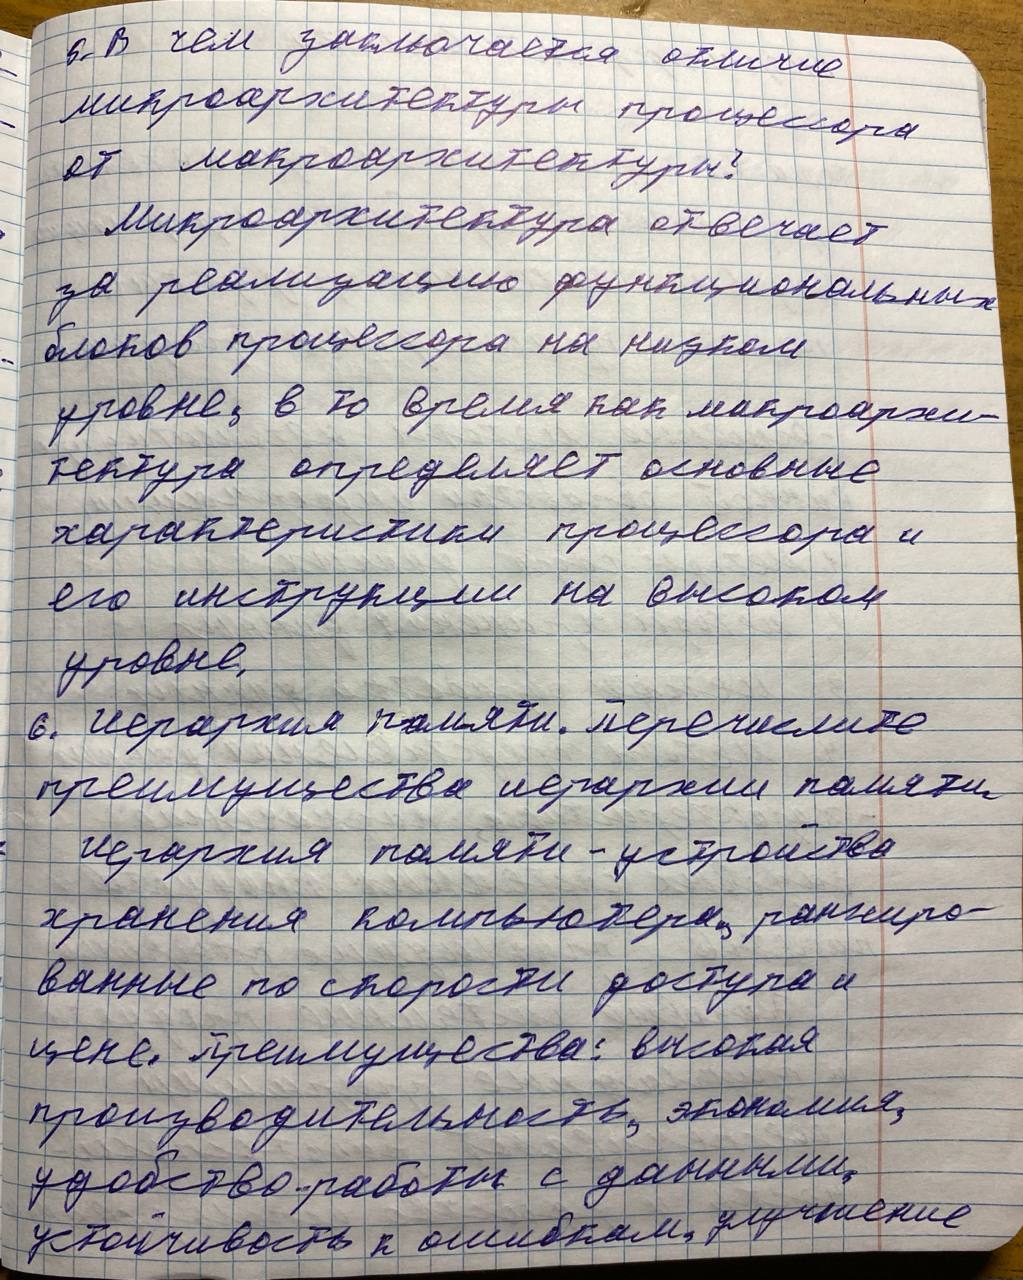 5. В чем заключается отличие
микроархитектуры процессора
от макроархитектуры?
Микроархитектура отвечает
за реализацию функциональных
блоков процессора на низком
уровне, в то время как макроархи-
тектура определяет основные
характеристики процессора и
его инструкции на высоком
уровне.
6. Иерархия памяти. Перечислите
преимущества иерархии памяти.
Иерархия памяти - устройства
хранения компьютера, ранжиро-
ванные по скорости доступа и
цене. Преимущества: высокая
производительность, экономия,
удобство работы с данными,
устойчивость к ошибкам, улучшение